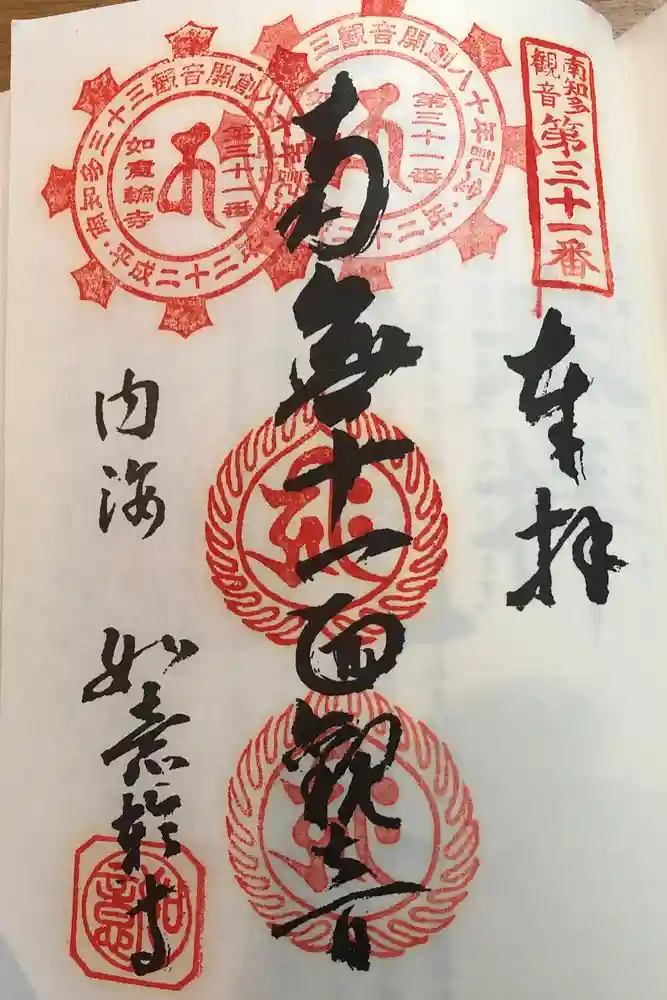 南知多
観音
第三十一番
奉拝
三観音開創八十年記念
第三十一番
南無十一面観世音
南知多三十三観音開創八十年記念・平成二十二年
第三十一番
如意輪寺
内海
如意輪寺